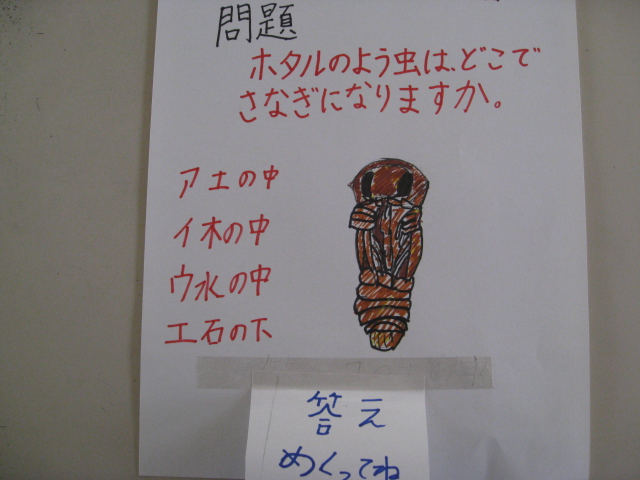 問題
ホタルのよう虫は、どこで
さなぎになりますか。
ア土の中
イ木の中
ウ水の中
エ石の下
答え
めくってね